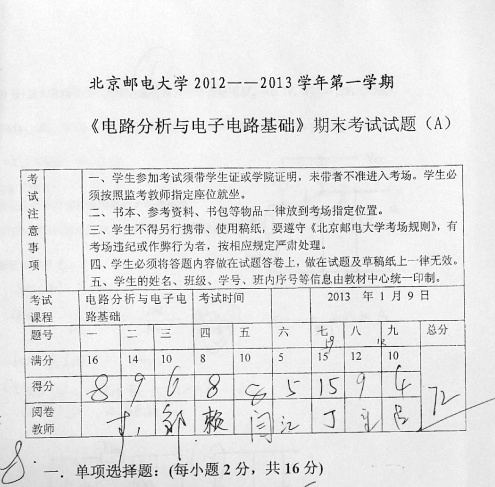 北京邮电大学2012——2013学年第一学期
《电路分析与电子电路基础》期末考试试题（A）
考试注意事项
一、学生参加考试须带学生证或学院证明，未带者不准进入考场。学生必
须按照监考教师指定座位就坐。
二、书本、参考资料、书包等物品一律放到考场指定位置。
三、学生不得另行携带、使用稿纸，要遵守《北京邮电大学考场规则》，有
考场违纪或作弊行为者，按相应规定严肃处理。
四、学生必须将答题内容做在试题答卷上，做在试题及草稿纸上一律无效。
五、学生的姓名、班级、学号、班内序号等信息由教材中心统一印制。
考试课程 电路分析与电子电路基础 考试时间 2013 年 1 月 9 日
题号 一 二 三 四 五 六 七 八 九 总分
满分 16 14 10 8 10 5 15 12 10
得分 8 9 6 8 8 5 15 9 4 72
阅卷教师 郭 赖 闫 江 丁 吕
8
一．单项选择题：(每小题 2 分，共 16 分)